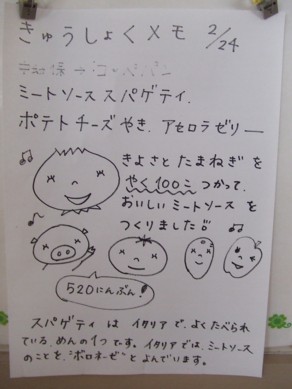 きゅうしょくメモ 2/24
コッペパン
ミートソーススパゲティ.
ポテトチーズやき. アセロラゼリー
きよさと たまねぎ を
やく100こ つかって、
おいしい ミートソース を
つくりました!!
520にんぶん!
スパゲティ は イタリア で、よく たべられ
ている、めんの1つ です。イタリア では、ミートソース
のことを、"ボロネーゼ" と よんでいます。